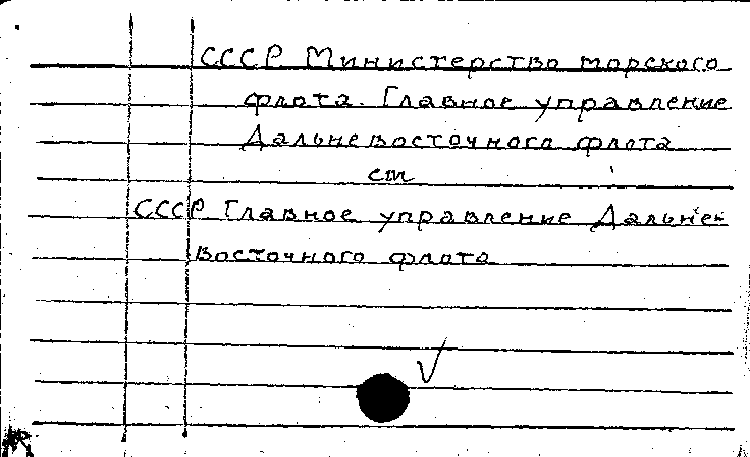 СССР Министерство морского
флота. Главное управление
Дальневосточного флота
см
СССР Главное управление Дальне-
восточного флота